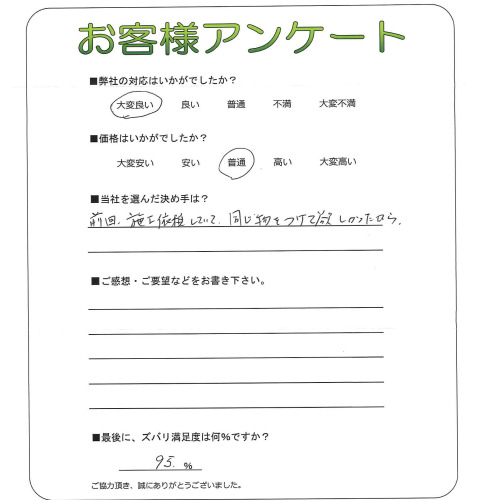 お客様アンケート
■弊社の対応はいかがでしたか？
大変良い 良い 普通 不満 大変不満
■価格はいかがでしたか？
大変安い 安い 普通 高い 大変高い
■当社を選んだ決め手は？
前回、施工依頼していて、同じ物をつけて欲しかったから。
■ご感想・ご要望などをお書き下さい。
■最後に、ズバリ満足度は何%ですか？
95. %
ご協力頂き、誠にありがとうございました。